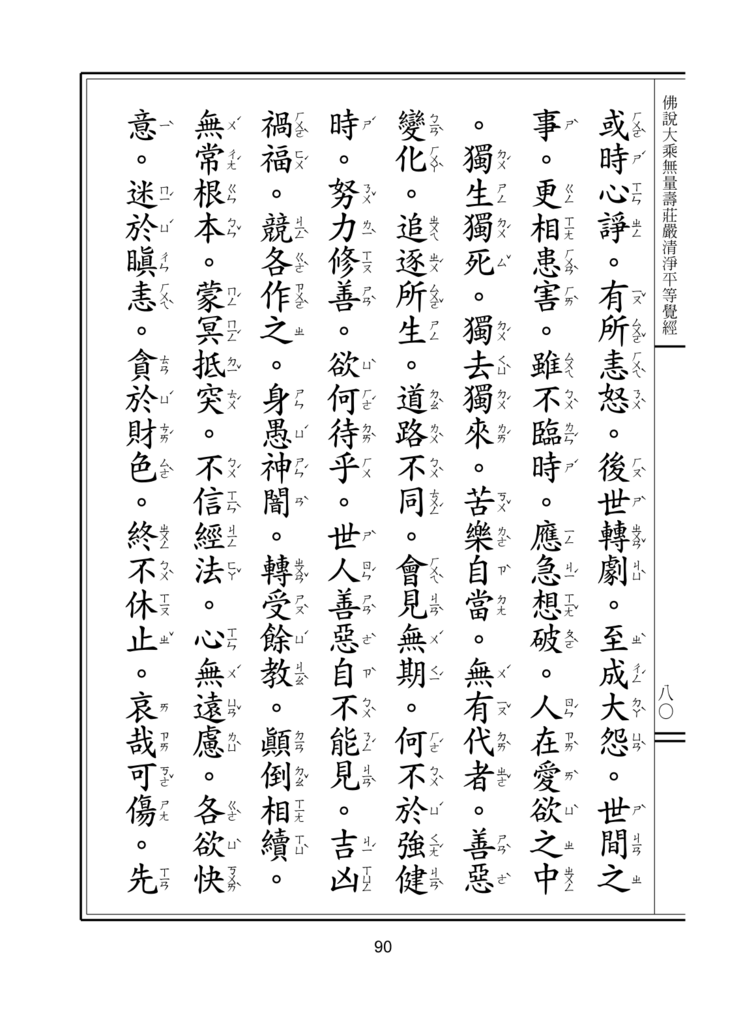 佛說大乘無量壽莊嚴清淨平等覺經
八〇
或時心諍。有所恚怒。後世轉劇。至成大怨。世間之
事。更相患害。雖不臨時。應急想破。人在愛欲之中
。獨生獨死。獨去獨來。苦樂自當。無有代者。善惡
變化。追逐所生。道路不同。會見無期。何不於強健
時。努力修善。欲何待乎。世人善惡自不能見。吉凶
禍福。競各作之。身愚神闇。轉受餘教。顛倒相續。
無常根本。蒙冥抵突。不信經法。心無遠慮。各欲快
意。迷於瞋恚。貪於財色。終不休止。哀哉可傷。先
90